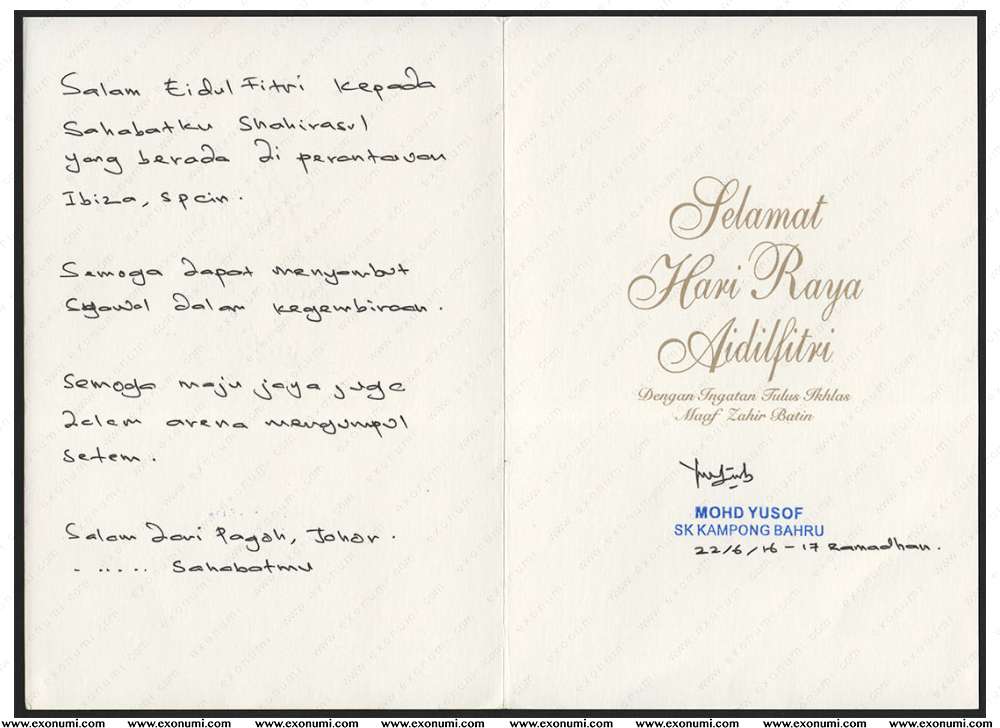 Salam Eidul Fitri kepada
Sahabatku Shahirasul
yang berada di perantauan
Ibiza, Spain.
Semoga dapat menyambut
Syawal dalam kegembiraan.
Semoga maju jaya juga
dalam arena mengumpul
setem.
Salam dari Pagoh, Johor.
...... Sahabatmu
Selamat
Hari Raya
Aidilfitri
Dengan Ingatan Tulus Ikhlas
Maaf Zahir Batin
MOHD YUSOF
SK KAMPONG BAHRU
22/6/16 - 17 Ramadhan.
www.exonumi.com www.exonumi.com www.exonumi.com www.exonumi.com www.exonumi.com www.exonumi.com www.exonumi.com www.exonumi.com